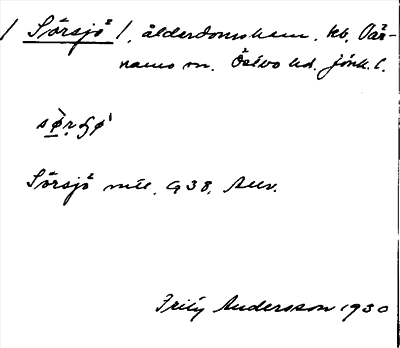 / Sörsjö /, ålderdomshem, kb, Vär-
namo sn. Östbo hd. Jönk. l.
sø̀r̤ɧø'
Sörsjö mtl. G38, Auv.
Fritz Andersson 1930